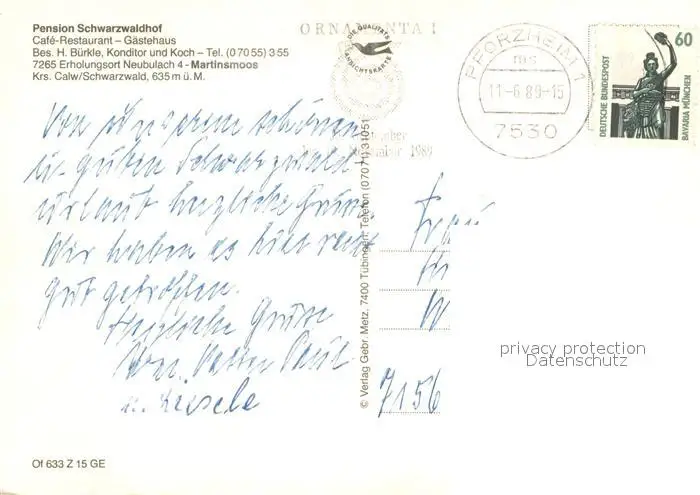 Pension Schwarzwaldhof
Café-Restaurant – Gästehaus
Bes. H. Bürkle, Konditor und Koch – Tel. (0 70 55) 3 55
7265 Erholungsort Neubulach 4 - Martinsmoos
Krs. Calw/Schwarzwald, 635 m ü. M.
ORNAMENTA I
DIE QUALITÄTS
ANSICHTSKARTE
1989
PFORZHEIM 1
ms
11-6 89-15
7530
60
DEUTSCHE BUNDESPOST
BAVARIA MÜNCHEN
Von schönen
u. guten Schwarzwald-
urlaub herzliche Grüße
Wir haben es hier
gut getroffen.
Herzliche Grüße
Paul
u.
© Verlag Gebr. Metz, 7400 Tübingen, Telefon (07071) 31051
Frau
7156
privacy protection
Datenschutz
Of 633 Z 15 GE